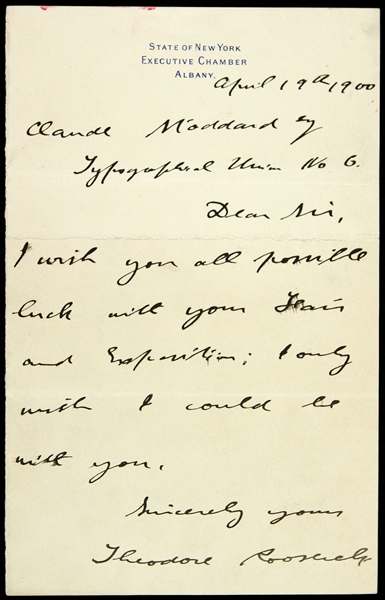 STATE OF NEW YORK
EXECUTIVE CHAMBER
ALBANY.
April 19th 1900
Claude Stoddard esq
Typographical Union No 6.
Dear Sir,
I wish you all possible
luck with your Fair
and Exposition; I only
wish I could be
with you.
Sincerely yours
Theodore Roosevelt